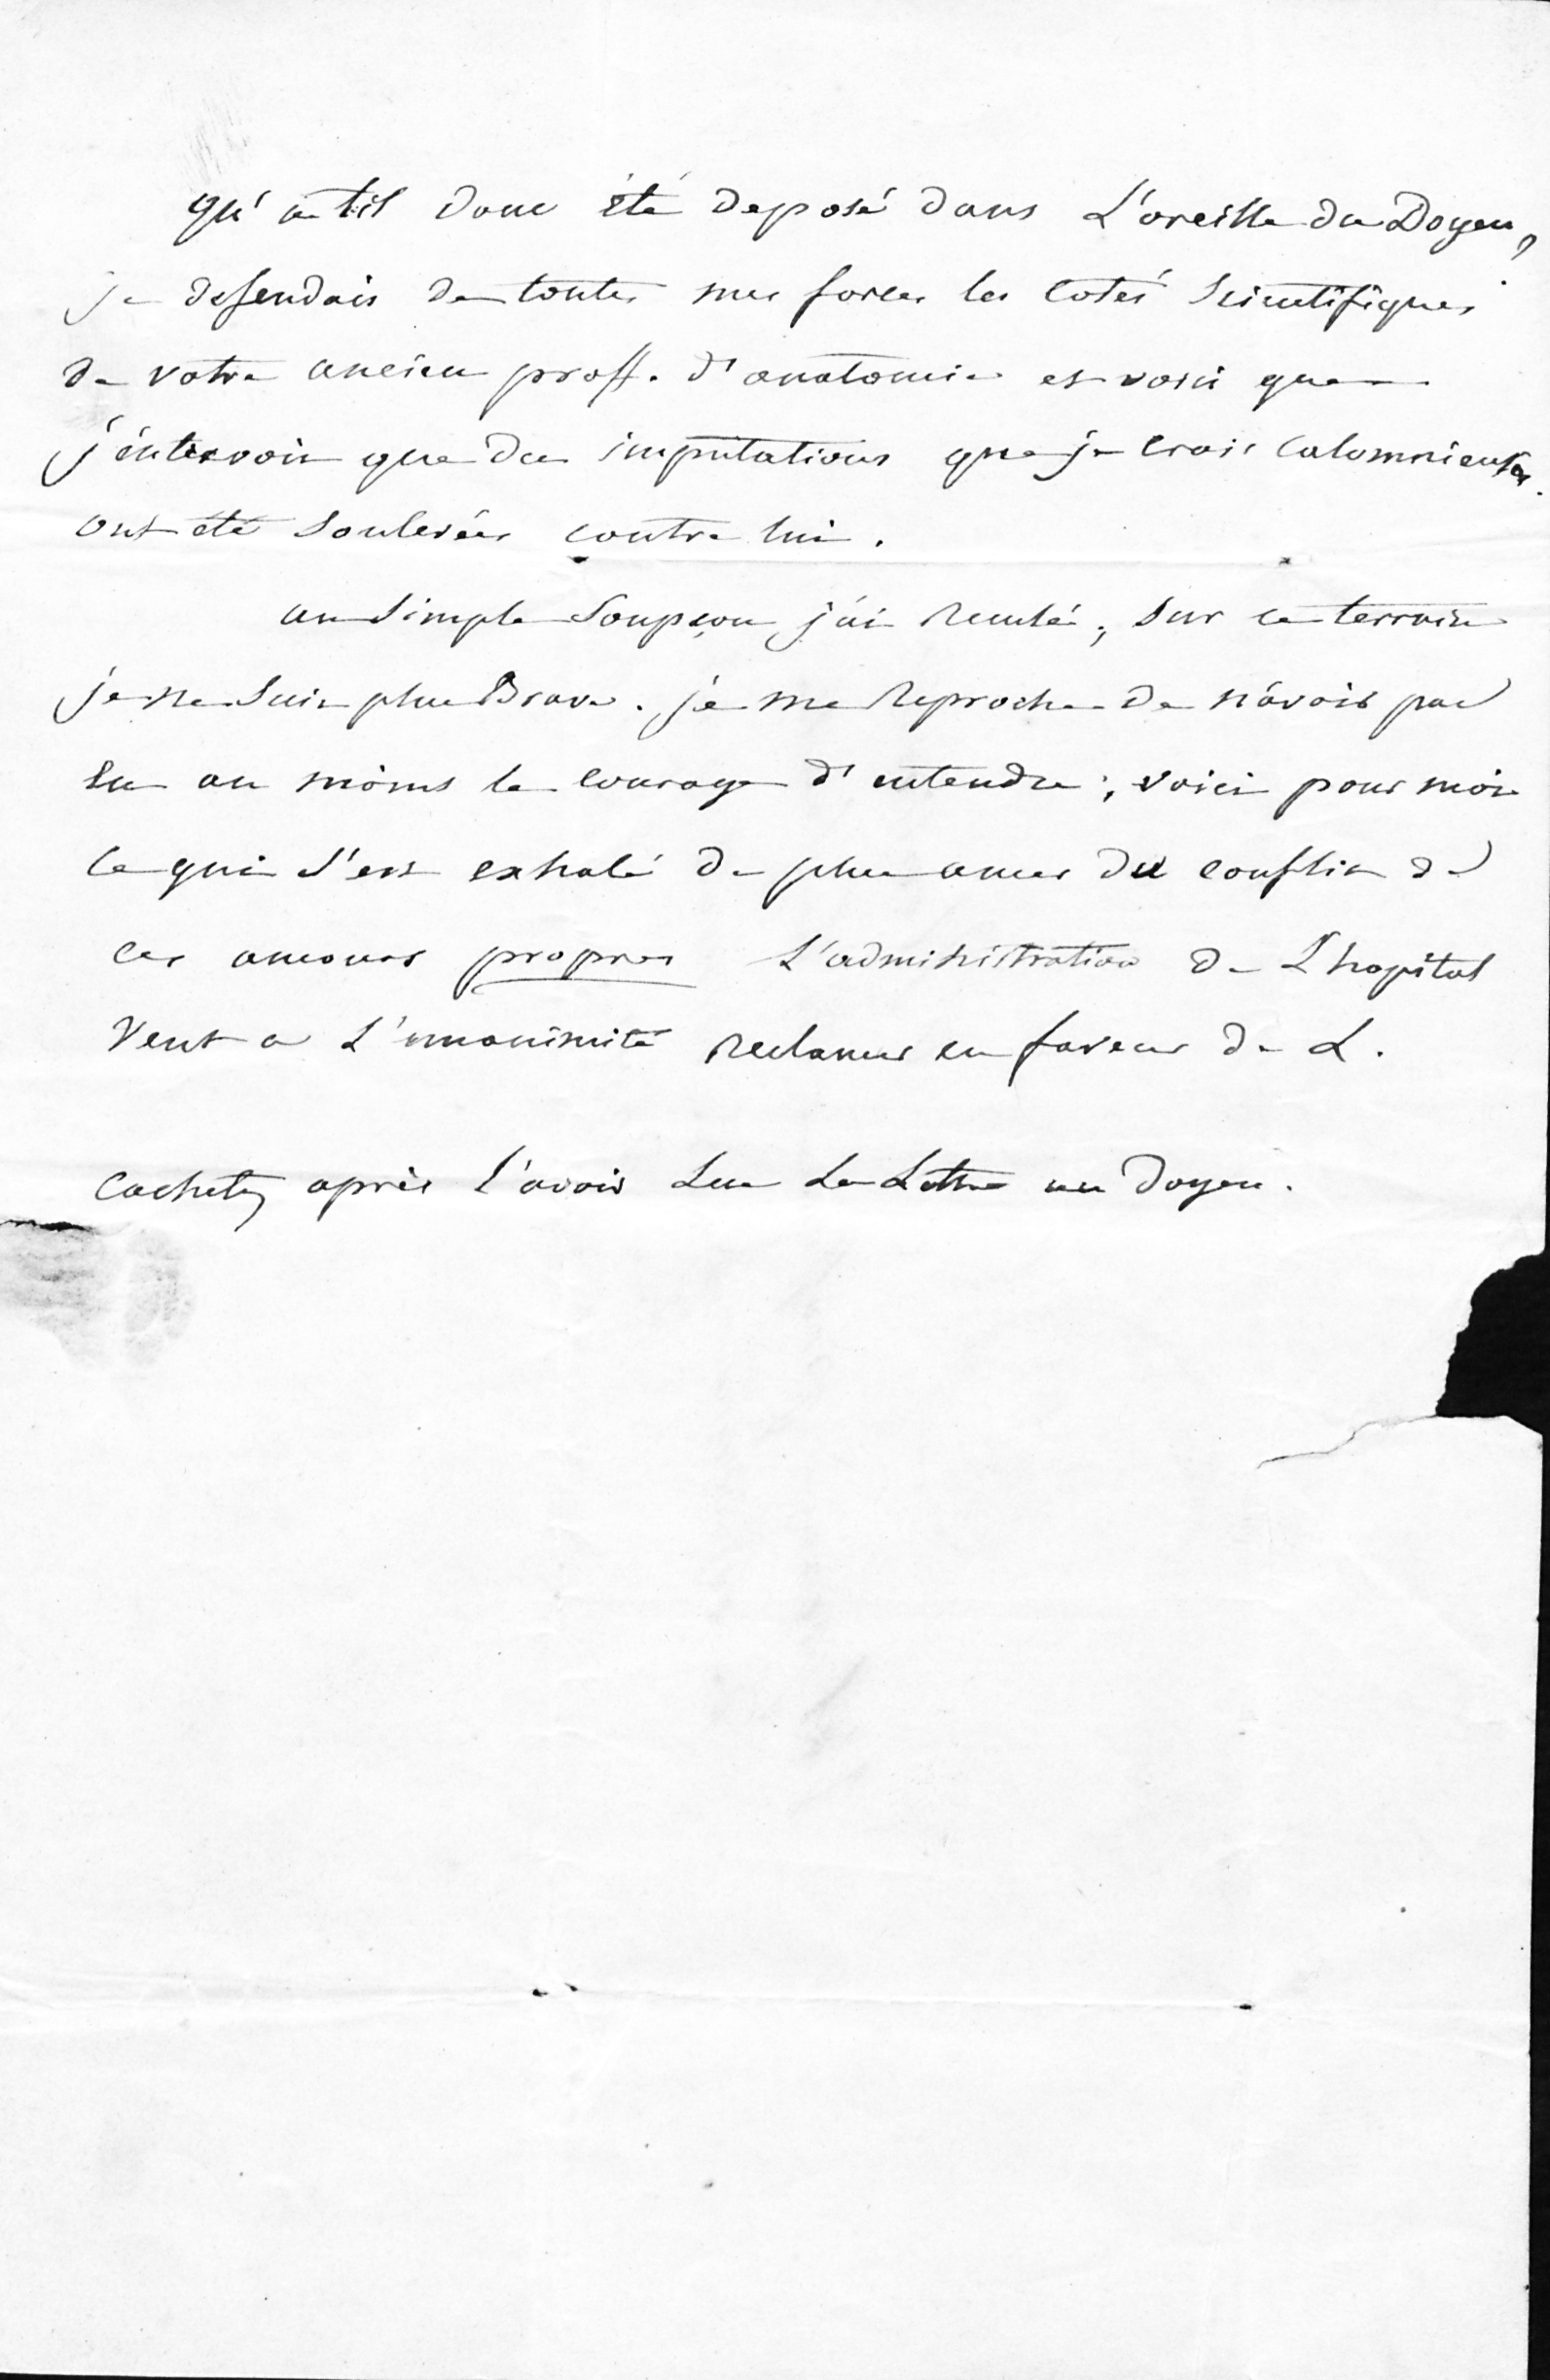 qu'a til donc été deposé dans L'oreille du Doyen,
je defendais de toutes mes forces les cotés Scientifiques
de votre ancien proff. d'anatomie et voici que
j'entrevois que des imputations que je crois calomnieuses
ont été Soulevées contre lui.
au Simple Soupçon j'ai reculé; Sur ce terrain
je ne Suis plus Brave. je me Reproche de n'avoir pas
eu au moins le courage d'entendre; voici pour moi
ce qui s'est exhalé de plus amer du conflit de
ces amours propres L'administration de L'hopital
Veut a L'unanimité reclamer en faveur de L.
Cachetez après l'avoir Lue La Lettre au Doyen.